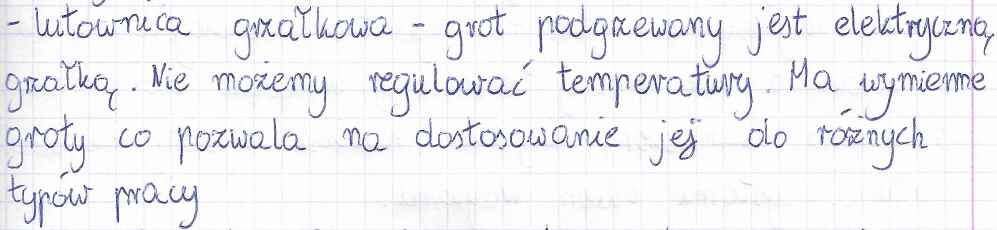 - lutownica grzałkowa - grot podgrzewany jest elektryczną
grzałką. Nie możemy regulować temperatury. Ma wymienne
groty co pozwala na dostosowanie jej do różnych
typów pracy